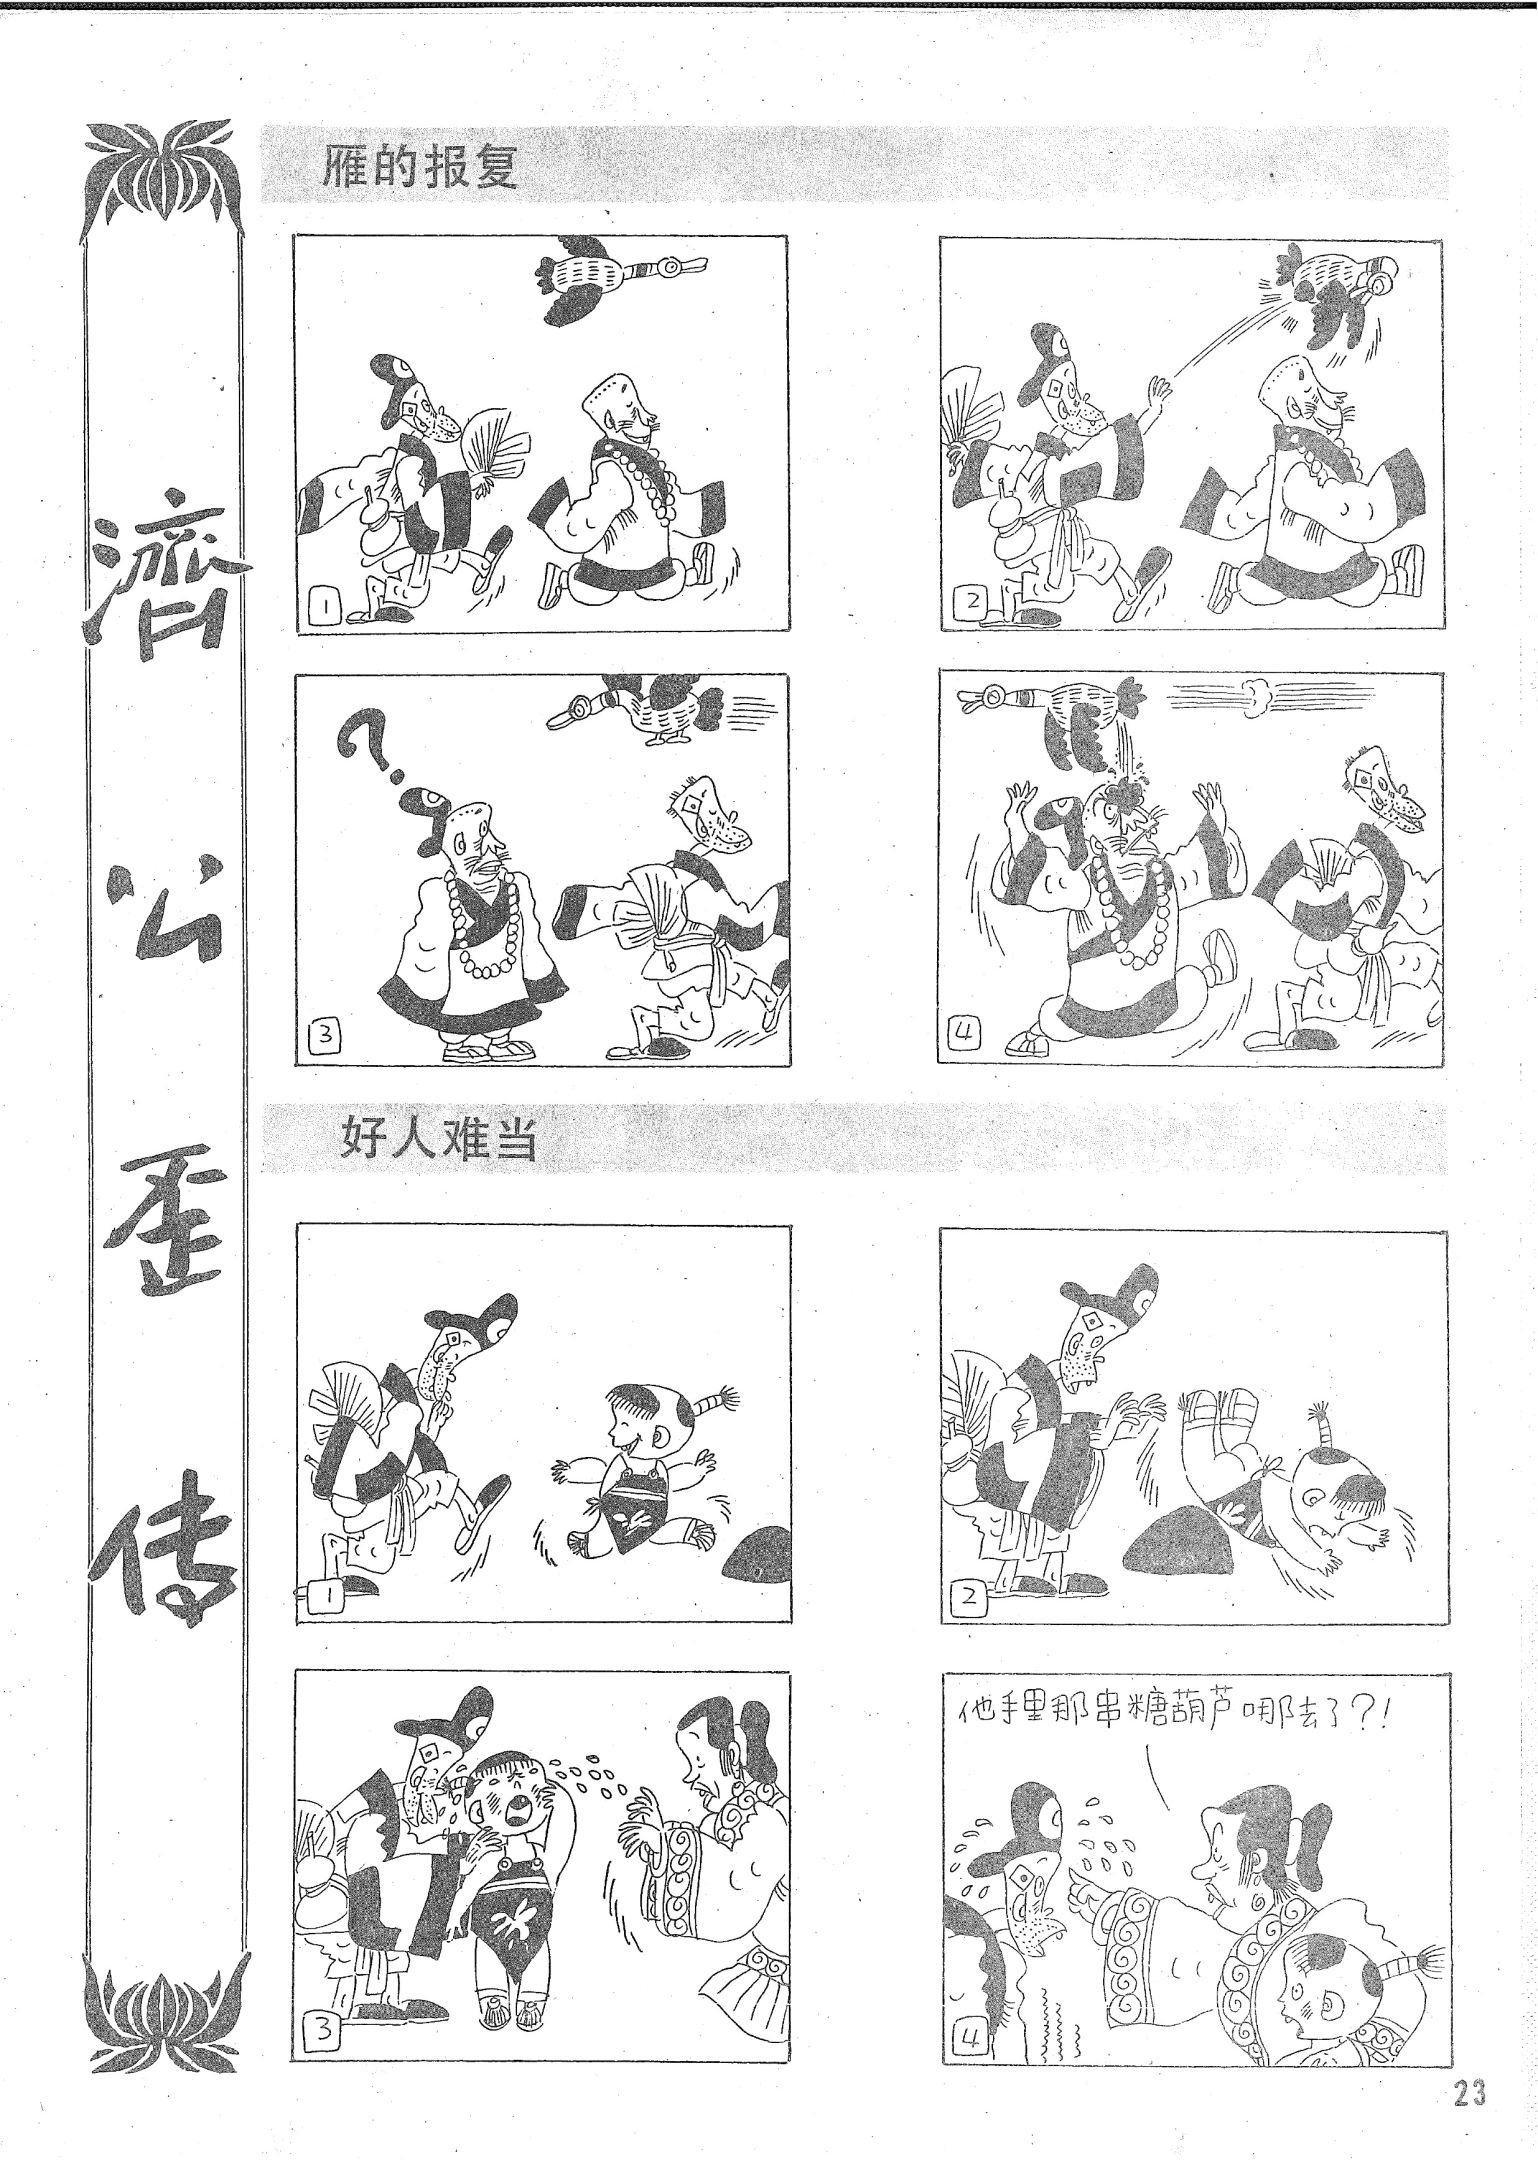 濟公歪传
雁的报复
1
2
3
4
好人难当
1
2
3
他手里那串糖葫芦哪去了？！
4
23